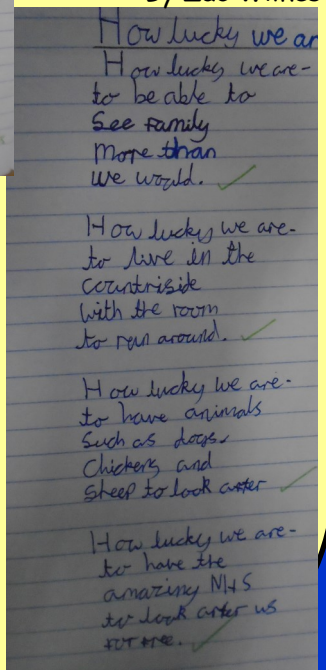 How lucky we ar
How lucky we are-
to be able to
See Family
More than
we would.
How lucky we are-
to live in the
countriside
with the room
to run around.
How lucky we are-
to have animals
Such as dogs,
Chickens and
Sheep to look after
How lucky we are-
to have the
amazing NHS
to look after us
for free.